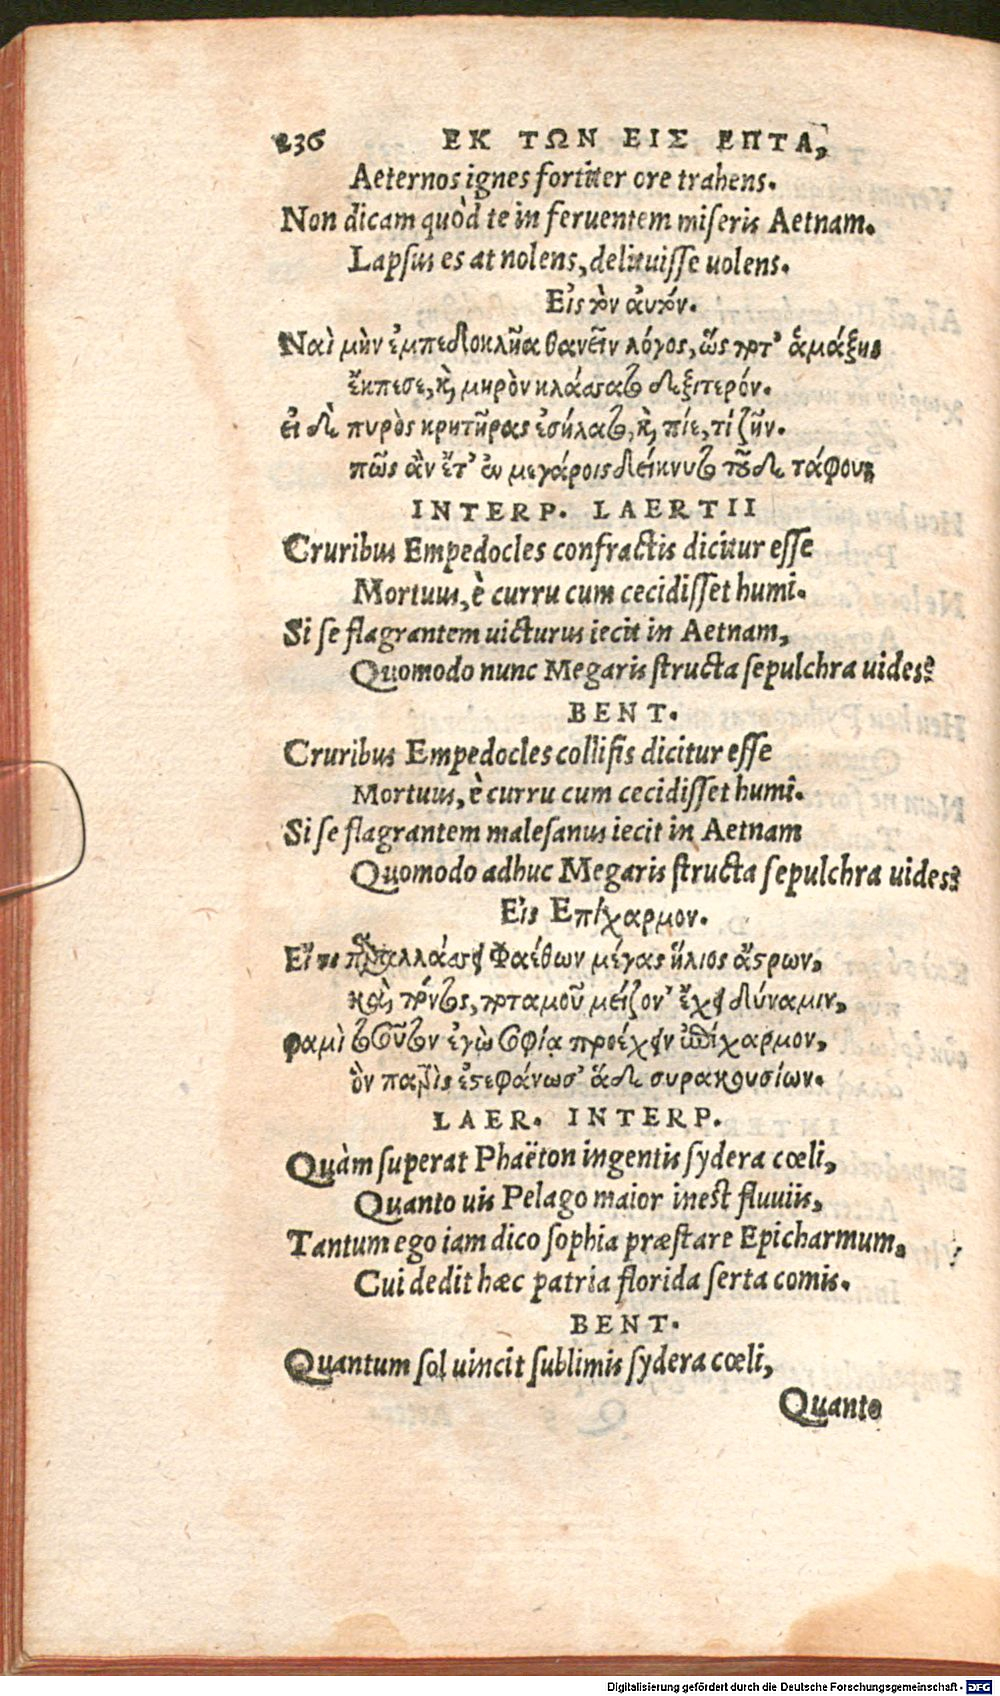 236 ΕΚ ΤΩΝ ΕΙΣ ΕΠΤΑ,
Aeternos ignes fortiter ore trahens.
Non dicam quòd te in feruentem miseris Aetnam.
Lapsus es at nolens, delituisse uolens.
Εἰς τὸν αὐτόν.
Ναὶ μὴν ἐμπεδοκλῆα θανεῖν λόγος, ὥς ποτ' ἁμάξης
ἔκπεσε, καὶ μηρὸν κλάσσατο δεξιτερόν.
εἰ δὲ πυρὸς κρητῆρας ἐσήλατο, καὶ πίε, τί ζῆν.
πῶς ἂν ἔτ' ἐν μεγάροις δείκνυτο τοῦδε τάφου;
INTERP. LAERTII
Cruribus Empedocles confractis dicitur esse
Mortuus, è curru cum cecidisset humi.
Si se flagrantem uicturus iecit in Aetnam,
Quomodo nunc Megaris structa sepulchra uides?
BENT.
Cruribus Empedocles collisis dicitur esse
Mortuus, è curru cum cecidisset humi.
Si se flagrantem malesanus iecit in Aetnam
Quomodo adhuc Megaris structa sepulchra uides?
Εἰς Επίχαρμον.
Εἴ τι παραλλάσσει Φαέθων μέγας ἥλιος ἄστρων,
καὶ πόντος, ποταμοῦ μείζον' ἔχει δύναμιν,
φαμὶ τοσοῦτον ἐγὼ σοφίᾳ προέχειν ἐπίχαρμον,
ὃν πατρὶς ἐστεφάνωσ' ἅδε συρακουσίων.
LAER. INTERP.
Quàm superat Phaëton ingentis sydera cœli,
Quanto uis Pelago maior inest fluuiis,
Tantum ego iam dico sophia præstare Epicharmum.
Cui dedit hæc patria florida serta comis.
BENT.
Quantum sol uincit sublimis sydera cœli,
Quanto
Digitalisierung gefördert durch die Deutsche Forschungsgemeinschaft - DFG